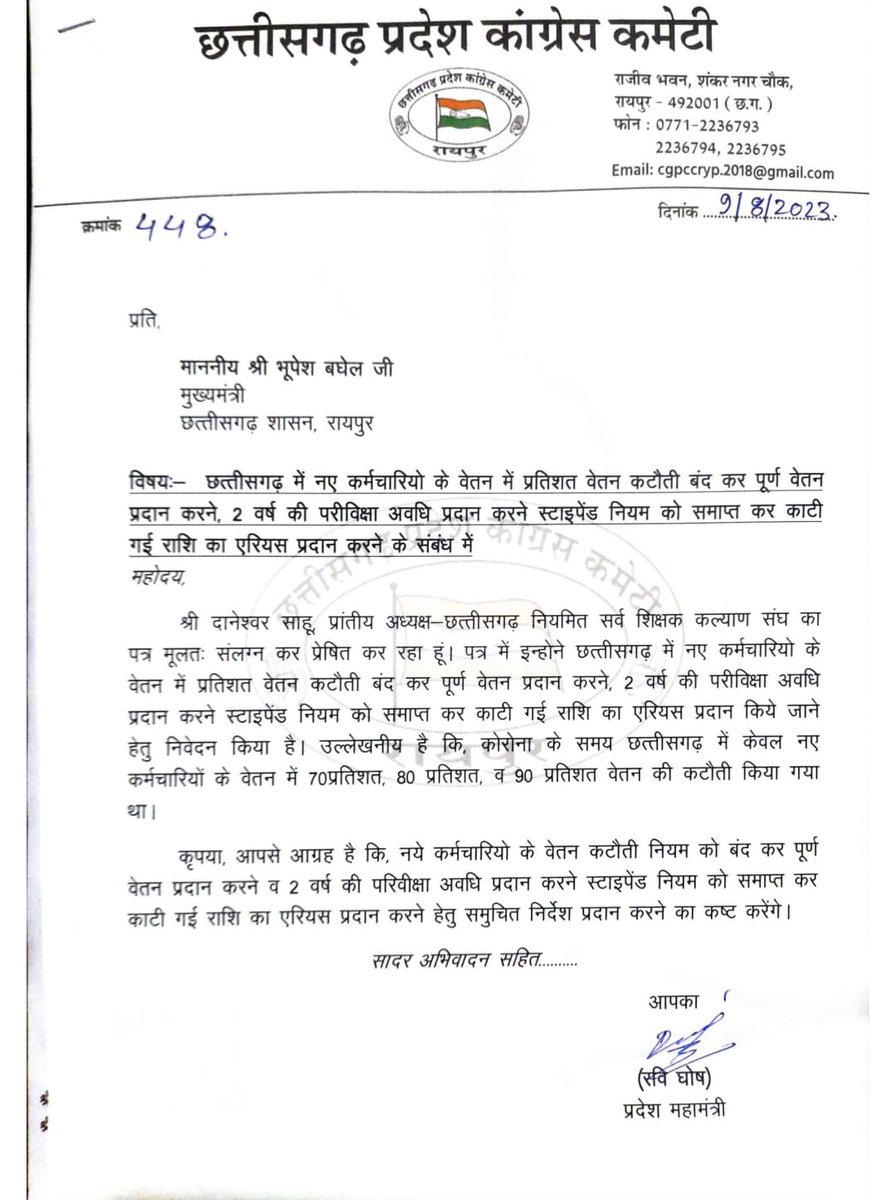 छत्तीसगढ़ प्रदेश कांग्रेस कमेटी
छत्तीसगढ़ प्रदेश कांग्रेस कमेटी
रायपुर
राजीव भवन, शंकर नगर चौक,
रायपुर - 492001 ( छ.ग. )
फोन : 0771-2236793
2236794, 2236795
Email: cgpccryp.2018@gmail.com
क्रमांक 448.
दिनांक 9/8/2023.
प्रति,
माननीय श्री भूपेश बघेल जी
मुख्यमंत्री
छत्तीसगढ़ शासन, रायपुर
विषयः– छत्तीसगढ़ में नए कर्मचारियो के वेतन में प्रतिशत वेतन कटौती बंद कर पूर्ण वेतन
प्रदान करने, 2 वर्ष की परीविक्षा अवधि प्रदान करने स्टाइपेंड नियम को समाप्त कर काटी
गई राशि का एरियस प्रदान करने के संबंध में
महोदय,
श्री दानेश्वर साहू, प्रांतीय अध्यक्ष–छत्तीसगढ़ नियमित सर्व शिक्षक कल्याण संघ का
पत्र मूलतः संलग्न कर प्रेषित कर रहा हूं। पत्र में इन्होने छत्तीसगढ़ में नए कर्मचारियो के
वेतन में प्रतिशत वेतन कटौती बंद कर पूर्ण वेतन प्रदान करने, 2 वर्ष की परीविक्षा अवधि
प्रदान करने स्टाइपेंड नियम को समाप्त कर काटी गई राशि का एरियस प्रदान किये जाने
हेतु निवेदन किया है। उल्लेखनीय है कि, कोरोना के समय छत्तीसगढ़ में केवल नए
कर्मचारियों के वेतन में 70प्रतिशत, 80 प्रतिशत, व 90 प्रतिशत वेतन की कटौती किया गया
था।
कृपया, आपसे आग्रह है कि, नये कर्मचारियो के वेतन कटौती नियम को बंद कर पूर्ण
वेतन प्रदान करने व 2 वर्ष की परिवीक्षा अवधि प्रदान करने स्टाइपेंड नियम को समाप्त कर
काटी गई राशि का एरियस प्रदान करने हेतु समुचित निर्देश प्रदान करने का कष्ट करेंगे।
सादर अभिवादन सहित..........
आपका
(रवि घोष)
प्रदेश महामंत्री